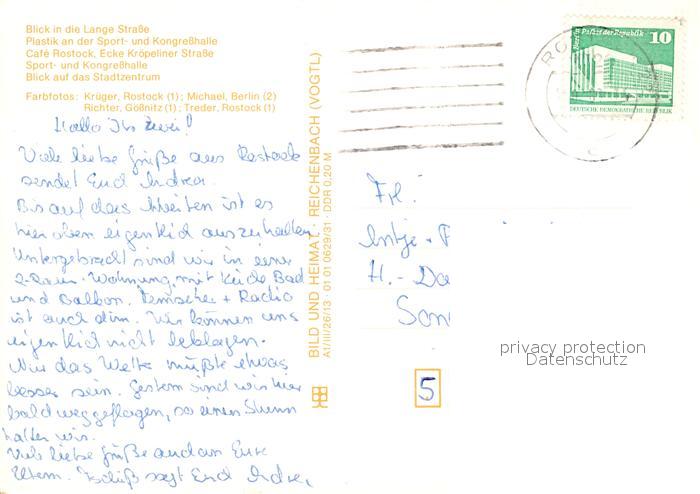 Blick in die Lange Straße
Plastik an der Sport- und Kongreßhalle
Café Rostock, Ecke Kröpeliner Straße
Sport- und Kongreßhalle
Blick auf das Stadtzentrum
Farbfotos: Krüger, Rostock (1); Michael, Berlin (2)
Richter, Gößnitz (1); Treder, Rostock (1)
Hallo Ihr zwei!
Viele liebe Grüße aus Rostock
sendet Euch Andrea.
Bis auf das Arbeiten ist es
hier oben eigentlich auszuhalten
Untergebracht sind wir in einer
2-Raum-Wohnung, mit Küche Bad
und Balkon. Fernseher + Radio
ist auch drin. Wir können uns
eigentlich nicht beklagen.
Nur das Wetter müßte etwas
besser sein. Gestern sind wir hier
bald weggeflogen, so einen Sturm
hatten wir.
Viele liebe Grüße auch an Eure
Eltern. Tschüß sagt Euch Andrea
BILD UND HEIMAT · REICHENBACH (VOGTL)
A1/III/26/13 · 01 01 0629/31 · DDR 0,20 M
Berlin, Palast der Republik
10
DEUTSCHE DEMOKRATISCHE REPUBLIK
RO
Antje + F
H.-Da
Son
5
privacy protection
Datenschutz